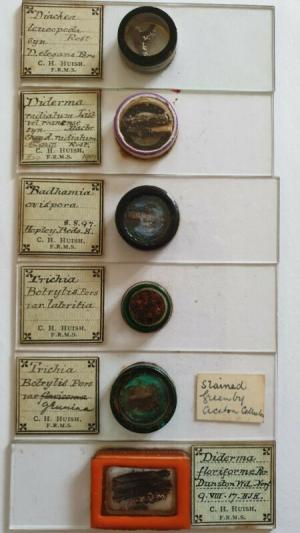 Diachea
leucopoda
syn. Rost
D. elegans Pers
C. H. HUISH,
F.R.M.S.
Diderma
radiatum List
var
syn.
radiatum
Rost,
C. H. HUISH,
F.R.M.S.
Badhamia
ovispora
8.8.97.
Hopley, Beds. H.
C. H. HUISH,
F.R.M.S.
Trichia
Botrytis Pers
var lateritia
C. H. HUISH,
F.R.M.S.
Trichia
Botrytis Pers
var
C. H. HUISH,
F.R.M.S.
Stained
green by
Diderma
floriforme Per
Dunston Wd. Norf
9.VIII.17. H.J.H.
C. H. HUISH,
F.R.M.S.